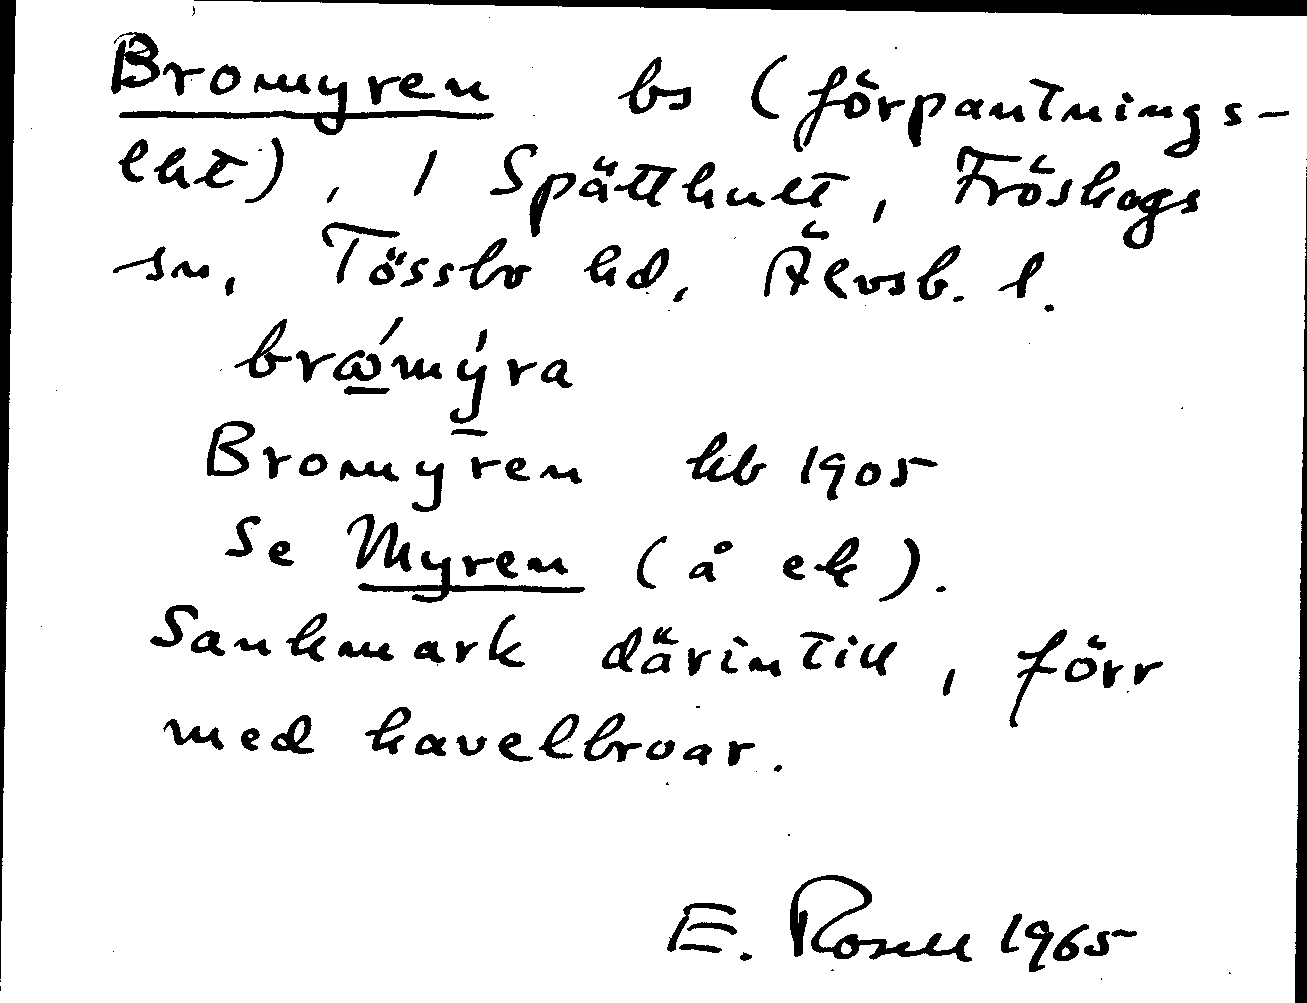 Bromyren bs (förpantnings-
lht), 1 Spätthult, Fröskogs
sn, Tössbo hd, Älvsb. l.
brώmýra
Bromyren kb 1905
Se Myren (å ek).
Sankmark därintill, förr
med kavelbroar.
E. Rosell 1965